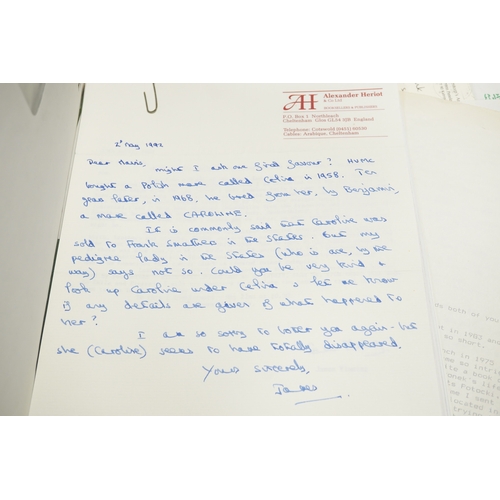 AH
Alexander Heriot
& Co Ltd
BOOKSELLERS & PUBLISHERS
P.O. Box 1 Northleach
Cheltenham Glos GL54 England
Telephone: Cotswold (0451)
Cables: Arabique, Cheltenham
May 1992
Dear might I ask one final favour? HVMC
bought a Polish mare called Celina in 1958. Ten
years later, in 1968, he bred from her, by Benjamin,
a mare called CAROLINE.
It is commonly said that Caroline was
sold to Frank in the States. But my
pedigree lady in the States (who is are, by the
way) says not so. Could you be very kind &
look up Caroline under Celina & let me know
if any details are given of what happened to
her?
I am so sorry to bother you again - but
she (Caroline) seems to have totally disappeared.
Yours sincerely,
James
as both of you
it in 1987 and
pe short.
ch in 1975
me so intrig
ite a good
is Potocki
me I sent
ocated in
trying